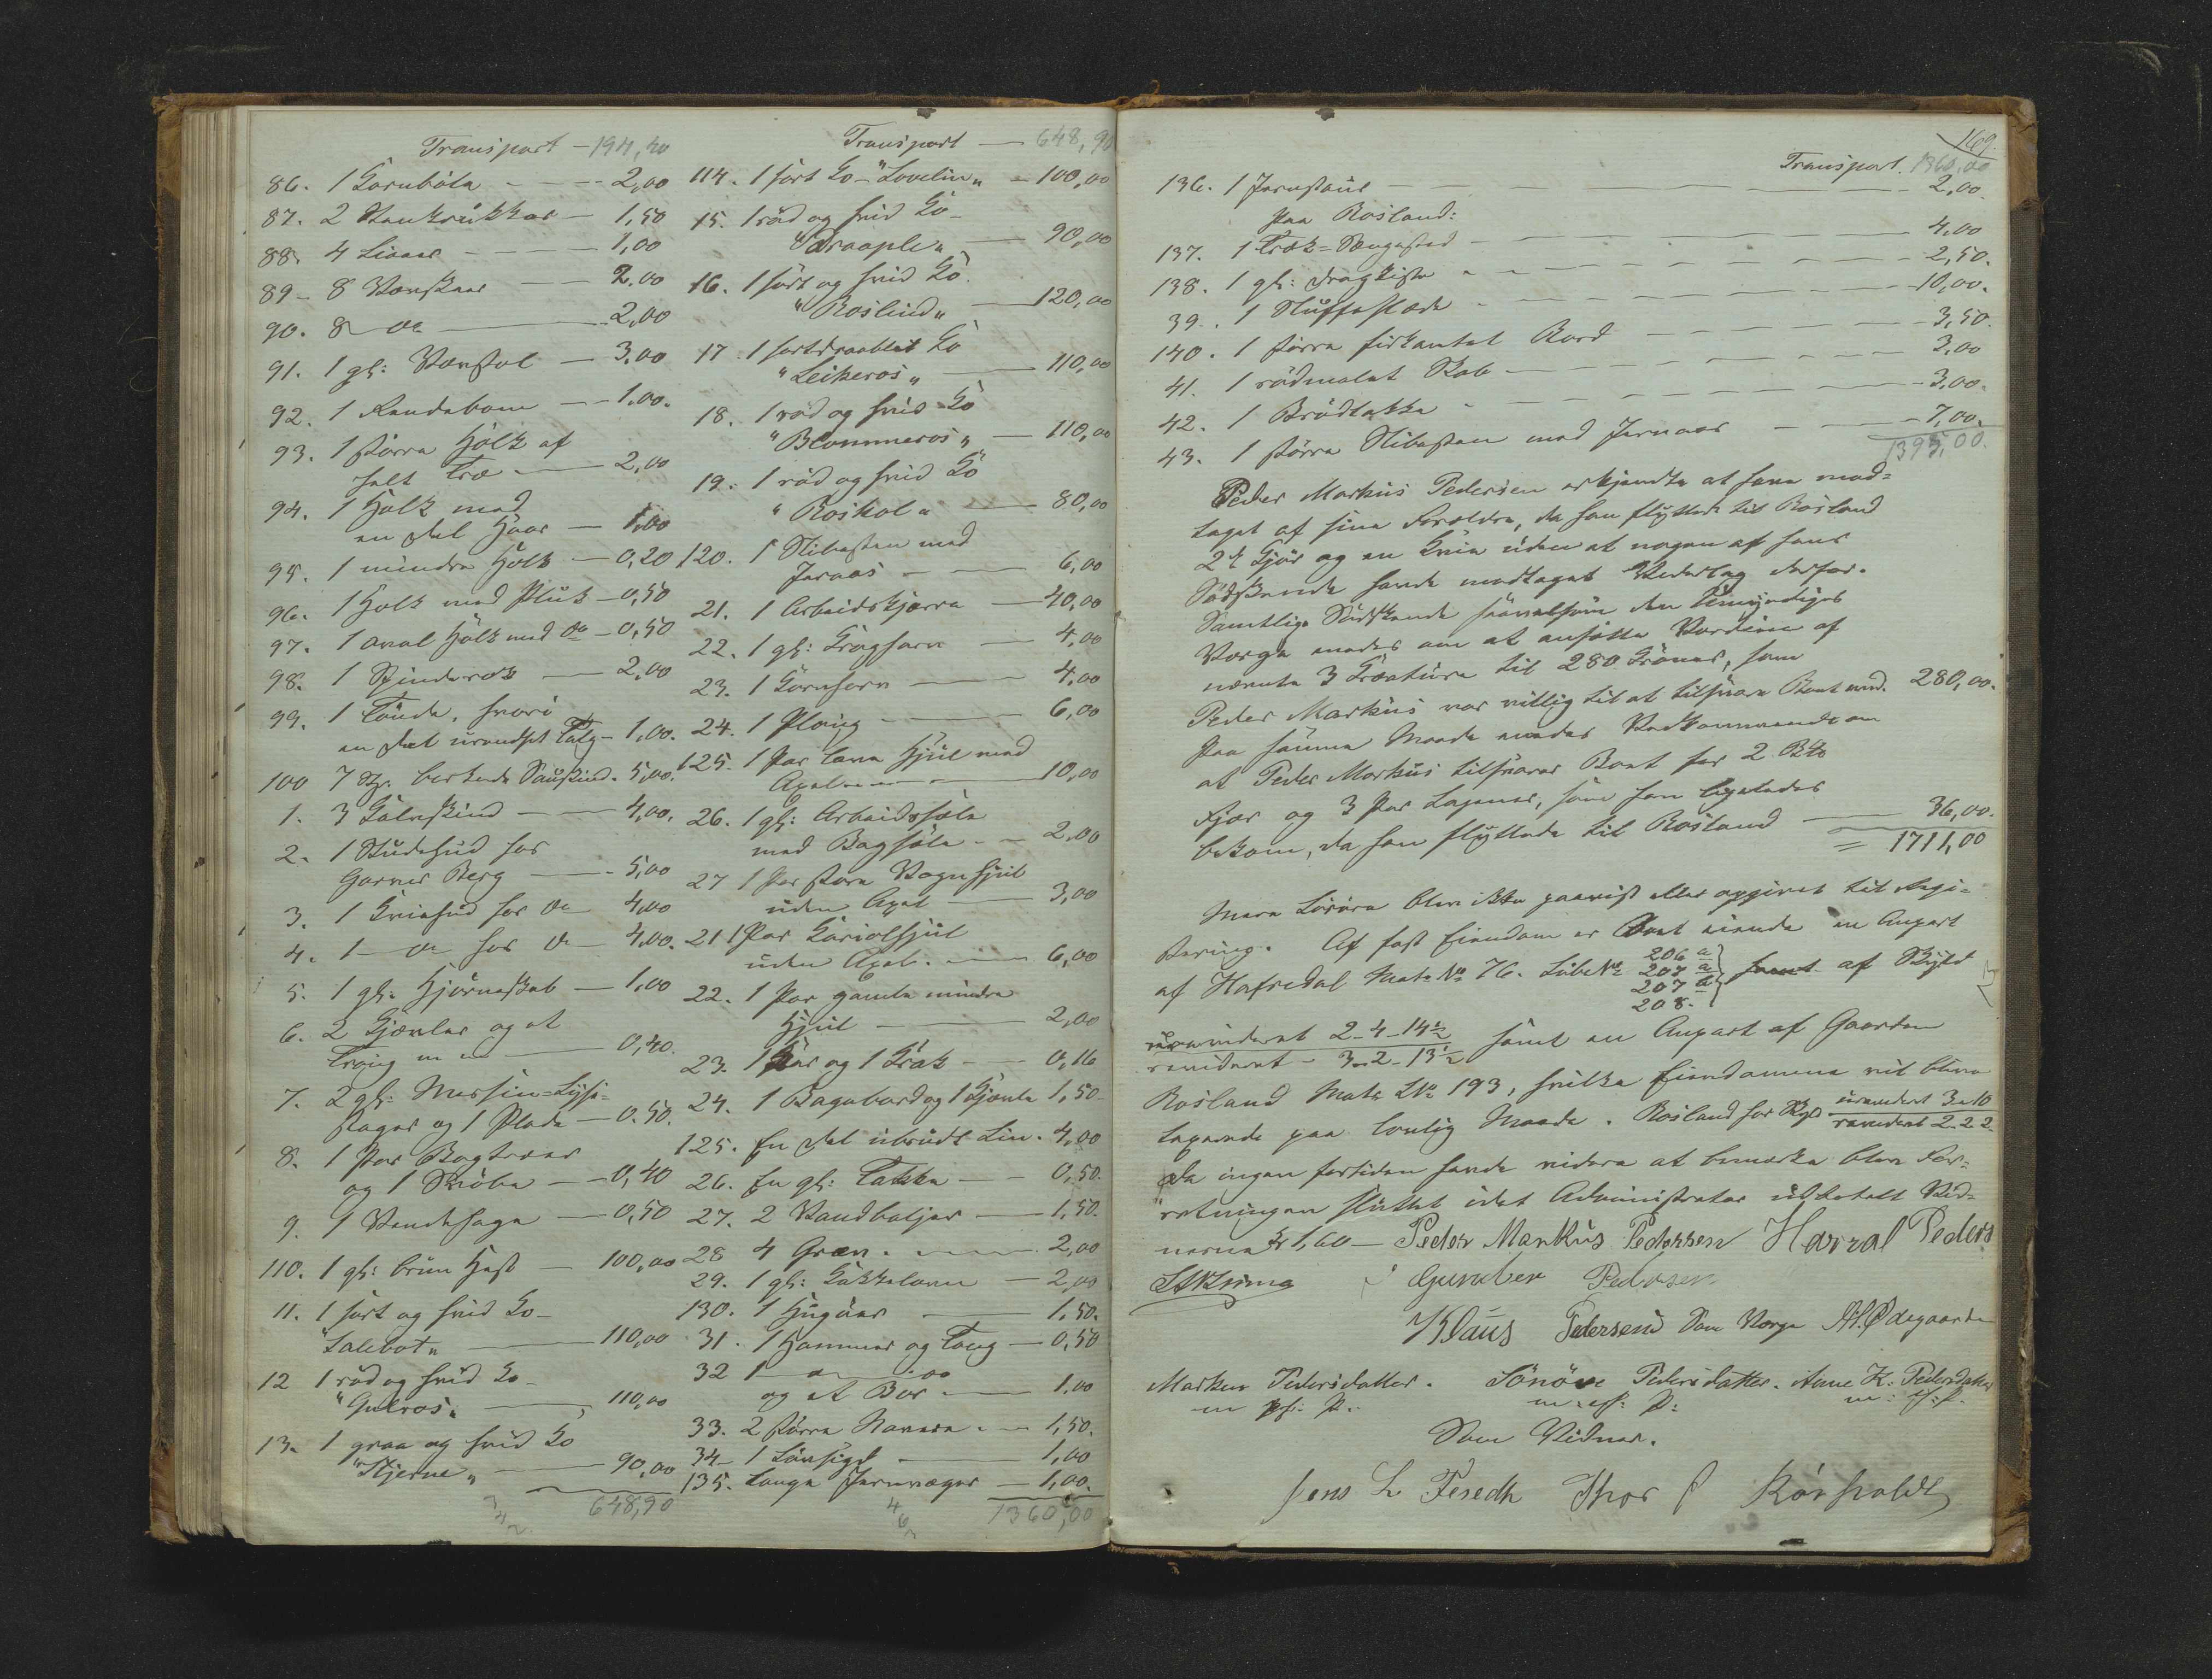 Transport - 194,40
86. 1 Kornböla - 2,00
87. 2 - 1,50
88. 4 Liaaer - 1,00
89 - 8 Vævskeer - 2,00
90. 8 do - 2,00
91. 1 gl: Vævstol - 3,00
92. 1 Rendebom - 1,00.
93. 1 större Hölk af
helt Træ - 2,00
94. 1 Hölk med
en Del Haar - 1,00
95. 1 mindre Hölk - 0,20
96. 1 Hölk med Pluk - 0,50
97. 1 aval Hölk med do - 0,50
98. 1 Spinderok - 2,00
99. 1 Tönde, hvori
en Del urendset Talg - 1,00.
100 7 St. berkede Saueskind - 5,00.
1. 3 Kalveskind - 4,00.
2. 1 Studehud hos
Garver Berg - 5,00
3. 1 Kviehud hos do 4,00
4. 1 - do hos do - 4,00.
5. 1 gl. Hjörneskab - 1,00
6. 2 Kjævler og et
Traug - 0,40.
7. 2 gl: Messing-Lyse-
stager og 1 Plade - 0.50.
8. 1 Par Bogtræer
og 1 - 0,40
9. 1 Vendesage - 0,50
110. 1 gl: brun Hest - 100,00
11. 1 sort og hvid Ko -
"Salebot" - 110,00
12 1 röd og hvid Ko -
"Gulros" - 110,00
13. 1 graa og hvid Ko
"Stjerne" - 90,00
648,90
Transport - 648,90
114. 1 sort Ko - "Lovelin" - 100,00
15. 1 röd og hvid Ko -
"Draaple" - 90,00
16. 1 sort og hvid Ko.
"Roslind" - 120,00
17. 1 sortdraablet Ko
"Leikeros" - 110,00
18. 1 röd og hvid Ko
"Blommeros" - 110,00
19. 1 röd og hvid Ko
"Roskol" - 80,00
120. 1 Slibesten med
Jernaas - 6,00
21. 1 Arbeidskjærre - 40,00
22. 1 gl: Krogharv - 4,00
23. 1 Kornharv - 4,00
24. 1 Ploug - 6,00
125. 1 Par lave Hjul med
Axel - 10,00
26. 1 gl: Arbeidssæle
med Bagsæle - 2,00
27 1 Par store Vognhjul
uden Axel - 3,00
21 1 Par Kariolhjul
uden Axel. - 6,00
22. 1 Par gamle mindre
Hjul - 2,00
23. 1 Kar og 1 Krak - 0,16
24. 1 Bagebord og 1 Kjævle 1,50
125. En Del ubrudt Lin. 4,00
26. En gl: Takke - 0,50.
27. 2 Vandbaljer - 1,50.
28 4 Grev. - 2,00
29. 1 gl: Kakkelovn - 2,00
130. 1 - 1,50.
31. 1 Hammer og Tang - 0,50
32 1 do do
og et Bor - 1,00
33. 2 större Navere - 1,50.
34 - 1 Lövsigd - 1,00
135. lange Jernvæger - 1,00.
1360,00
169.
Transport. 1360,00
136. 1 Jernstaur - 2,00.
Paa Rosland:
137. 1 Træk-Sengested - 4,00
138. 1 gl: Dragkiste - 2,50.
39. 1 Sluffeslæde - 10,00.
140. 1 större firkantet Bord - 3,50.
41. 1 rödmalet Skab - 3,00
42. 1 Brödtakke - 3,00.
43. 1 större Slibesten med Jernaas - 7,00.
1395,00.
Peder Markus Pedersen erkjendte at have mod-
taget af sine Forældre, da han flyttede til Rosland
2 Kjör og en Kvie uden at nogen af hans
Södskende havde modtaget Vederlag derfor.
Samtlige Södskende saavelsom den Umyndiges
Værge enedes om at ansætte Værdien af
nævnte 3 Kreature til 280 Kroner, som
Peder Markus var villig til at tilsvare Boet med. 280,00.
Paa samme Maade enedes Vedkommende om
at Peder Markus tilsvarer Boet for 2
Fjær og 3 Par Lagener, som han ligeledes
bekom, da han flyttede til Rosland - 36,00.
= 1711,00
Mere Lösöre blev ikke paavist eller opgivet til Regi-
strering. Af fast Eiendom er Boet eiende en Anpart
af Hafredal Mats No 76. Löbe No 206 a 207 a 207 d 208. af Skyld
urevideret 2-4-14½
revideret - 3-2-13½ samt en Anpart af Gaarden
Rosland Mats LNo 193, hvilke Eiendomme vil blive
taxerede paa lovlig Maade. Rosland har Skyld urevideret 3-10
revideret 2-2-2
Da ingen fortiden havde videre at bemærke blev For-
retningen sluttet idet Administrator udbetalt Vid-
nerne Kr 1,60 - Peder Markus Pedersen Harral Peders
Gunder Pedersen
Klaus Pedersen Som Værge A. Ødegaarden
Marken Pedersdatter. Sönöve Pedersdatter. Anne K. Pedersdatter
m. p: P: m. p: P: m: p: P.
Som Vidner.
Jens L Feredh Thor P Rörholdt